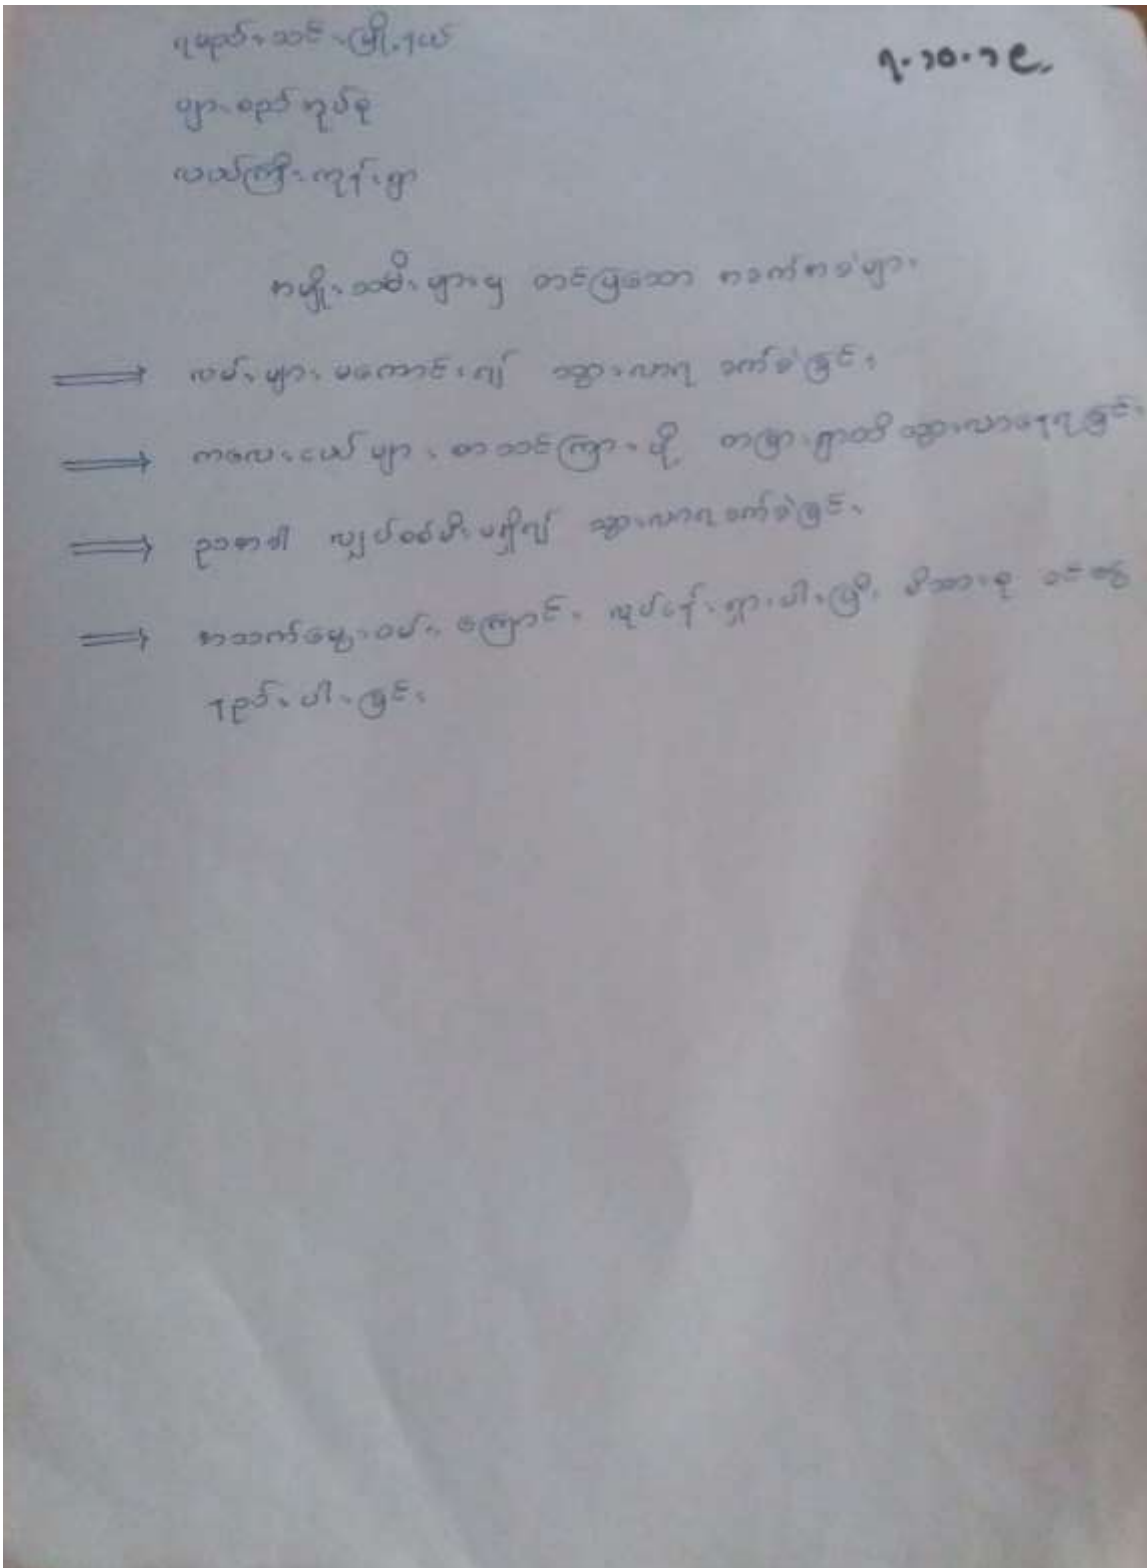 ရမည်းသင်းမြို့နယ်
၇.၁၀.၁၉.
ဖျားစည်အုပ်စု
လယ်ကြီးကုန်းရွာ
အမျိုးသမီးများမှ တင်ပြသော အခက်အခဲများ
⟹ လမ်းများ မကောင်း၍ သွားလာရ ခက်ခဲခြင်း
⟹ ကလေးငယ်များ စာသင်ကြားဖို့ တခြားရွာထိ သွားလာနေရခြင်း
⟹ ဥသစာခါ လျှပ်စစ်မီးမရှိ၍ သွားလာရခက်ခဲခြင်း
⟹ အသက်မွေးဝမ်းကြောင်း လုပ်ငန်းရှားပါးပြီး မိသားစု ဝင်ငွေ
နည်းပါးခြင်း